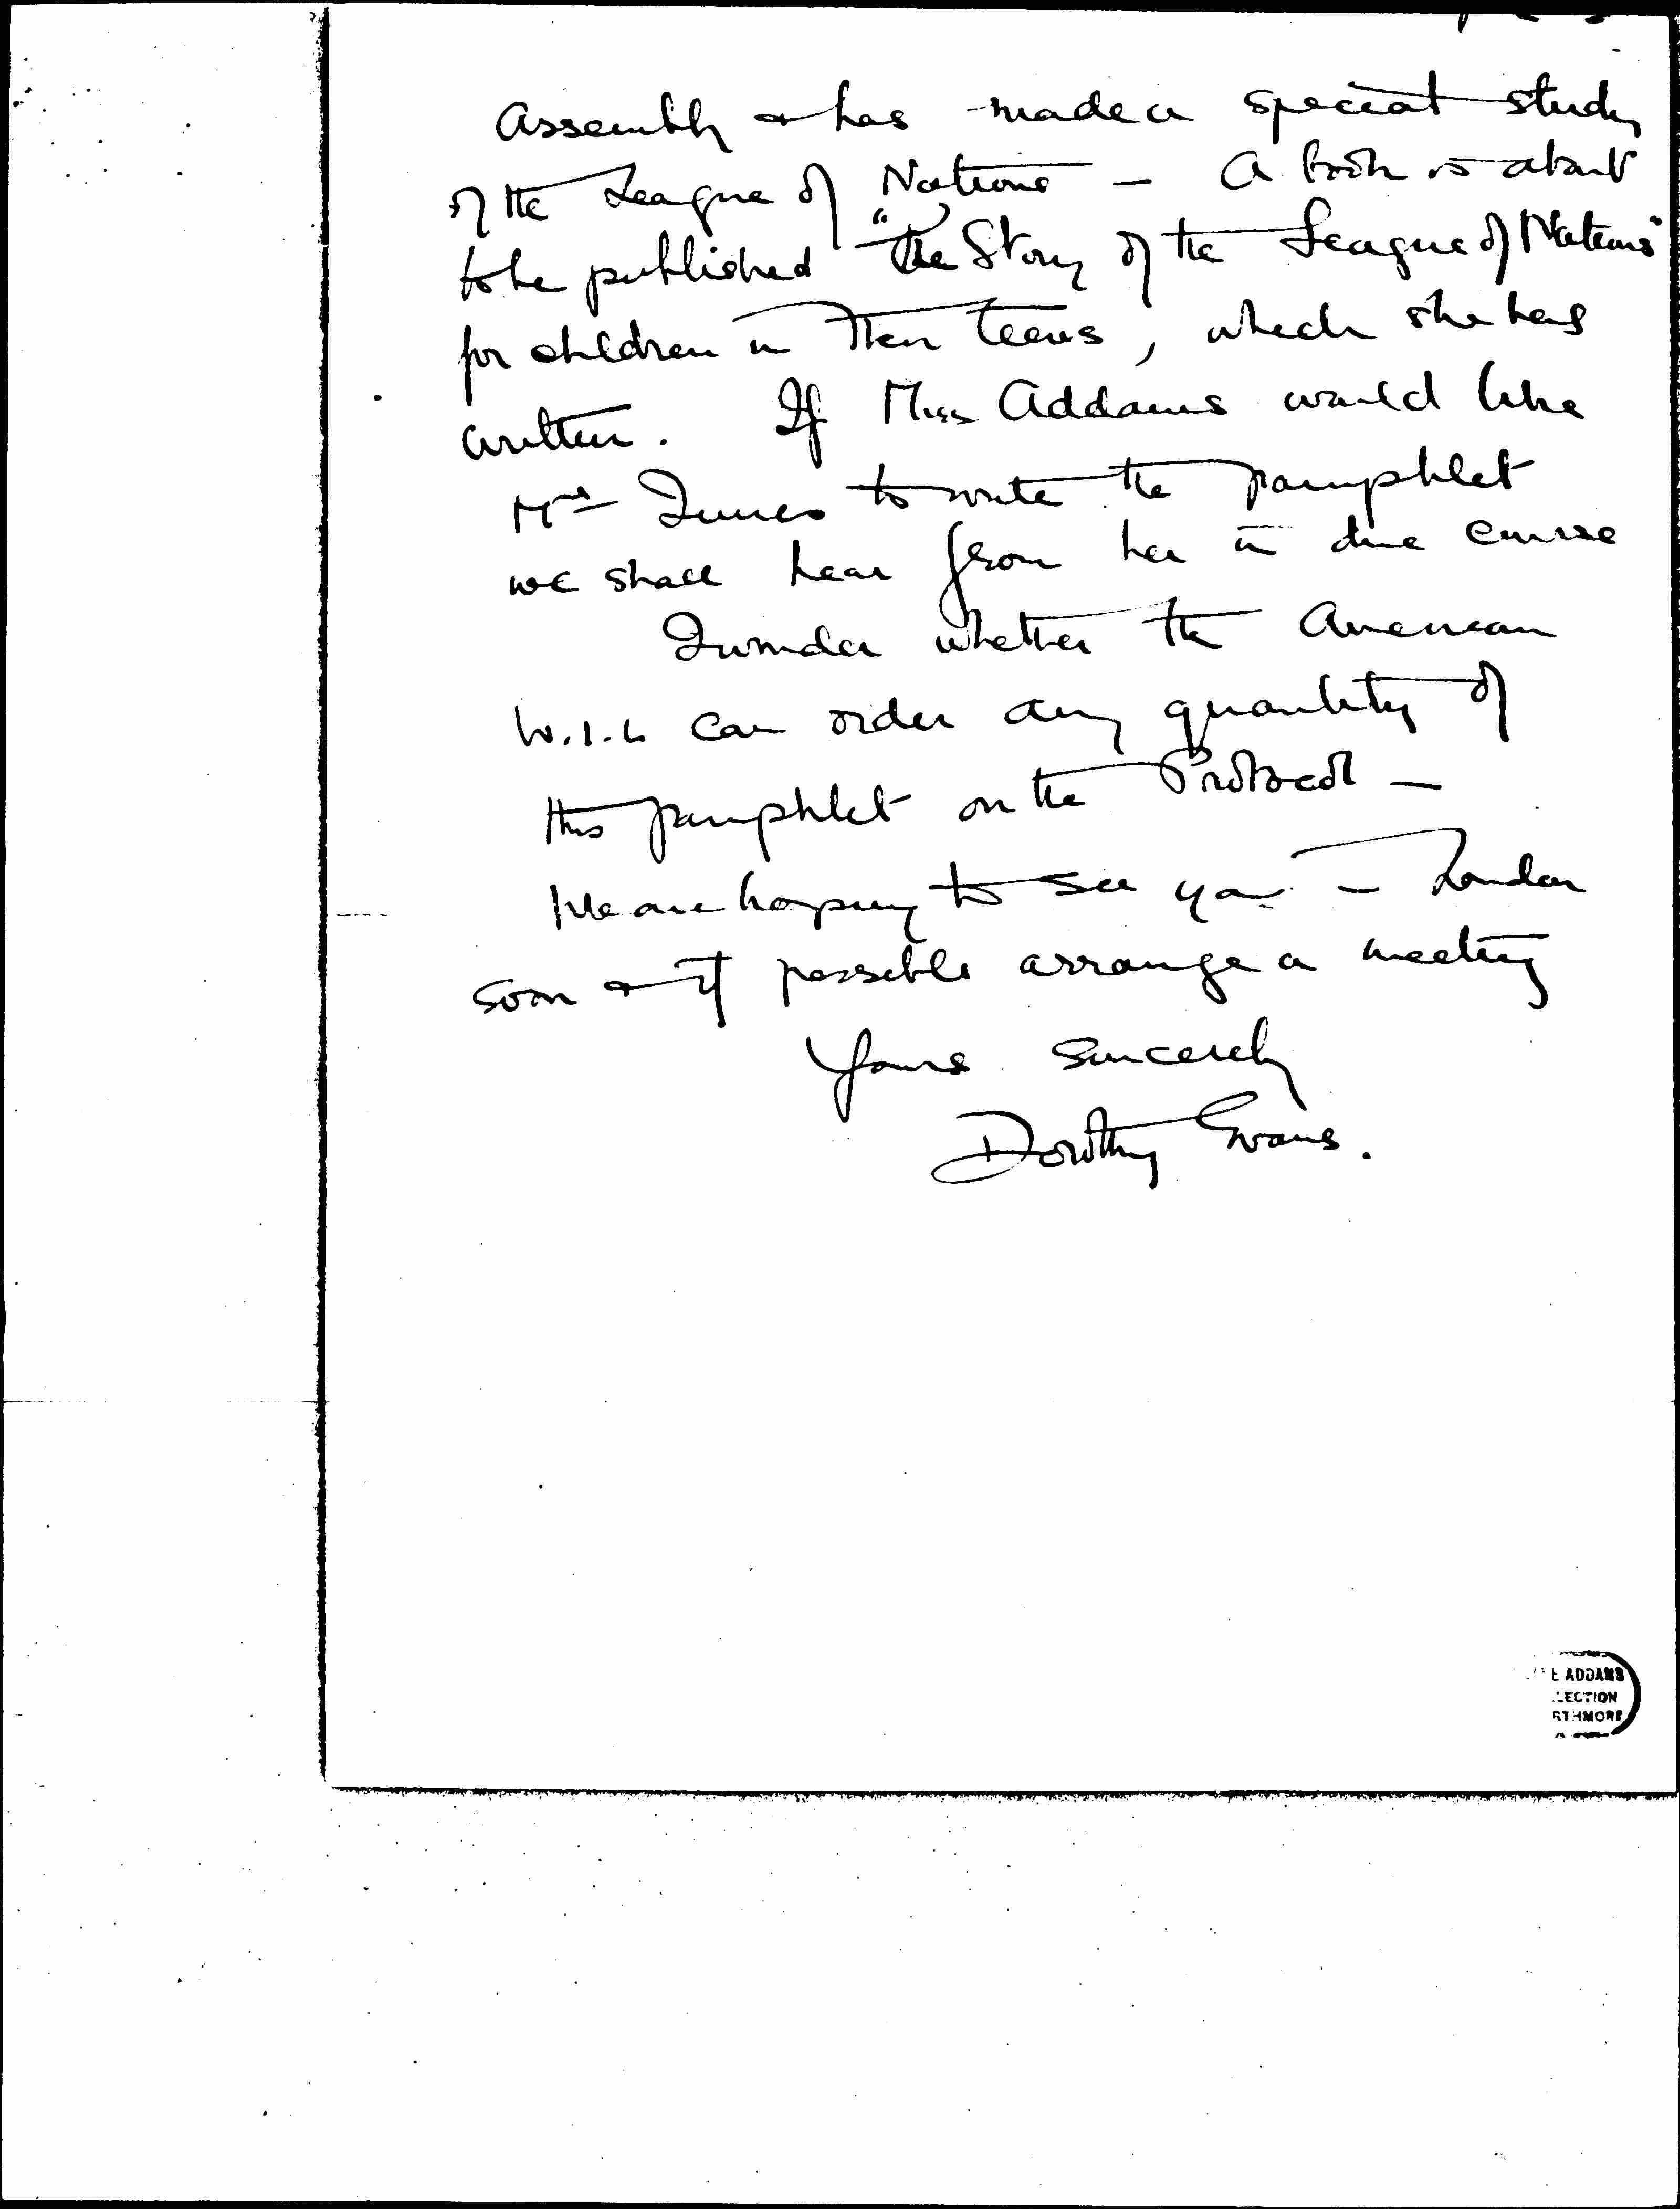 Assembly & has made a special study
of the League of Nations - A book is about
to be published "The Story of the League of Nations"
for children in their teens, which she has
written. If Miss Addams would like
Mrs Innes to write the pamphlet
we shall hear from her in due course
I wonder whether the American
W.I.L can order any quantity of
this pamphlet on the Protocol -
We are hoping to see you in London
soon & if possible arrange a meeting
Yours sincerely
Dorothy Evans.
E ADDAMS
LECTION
RTHMORE